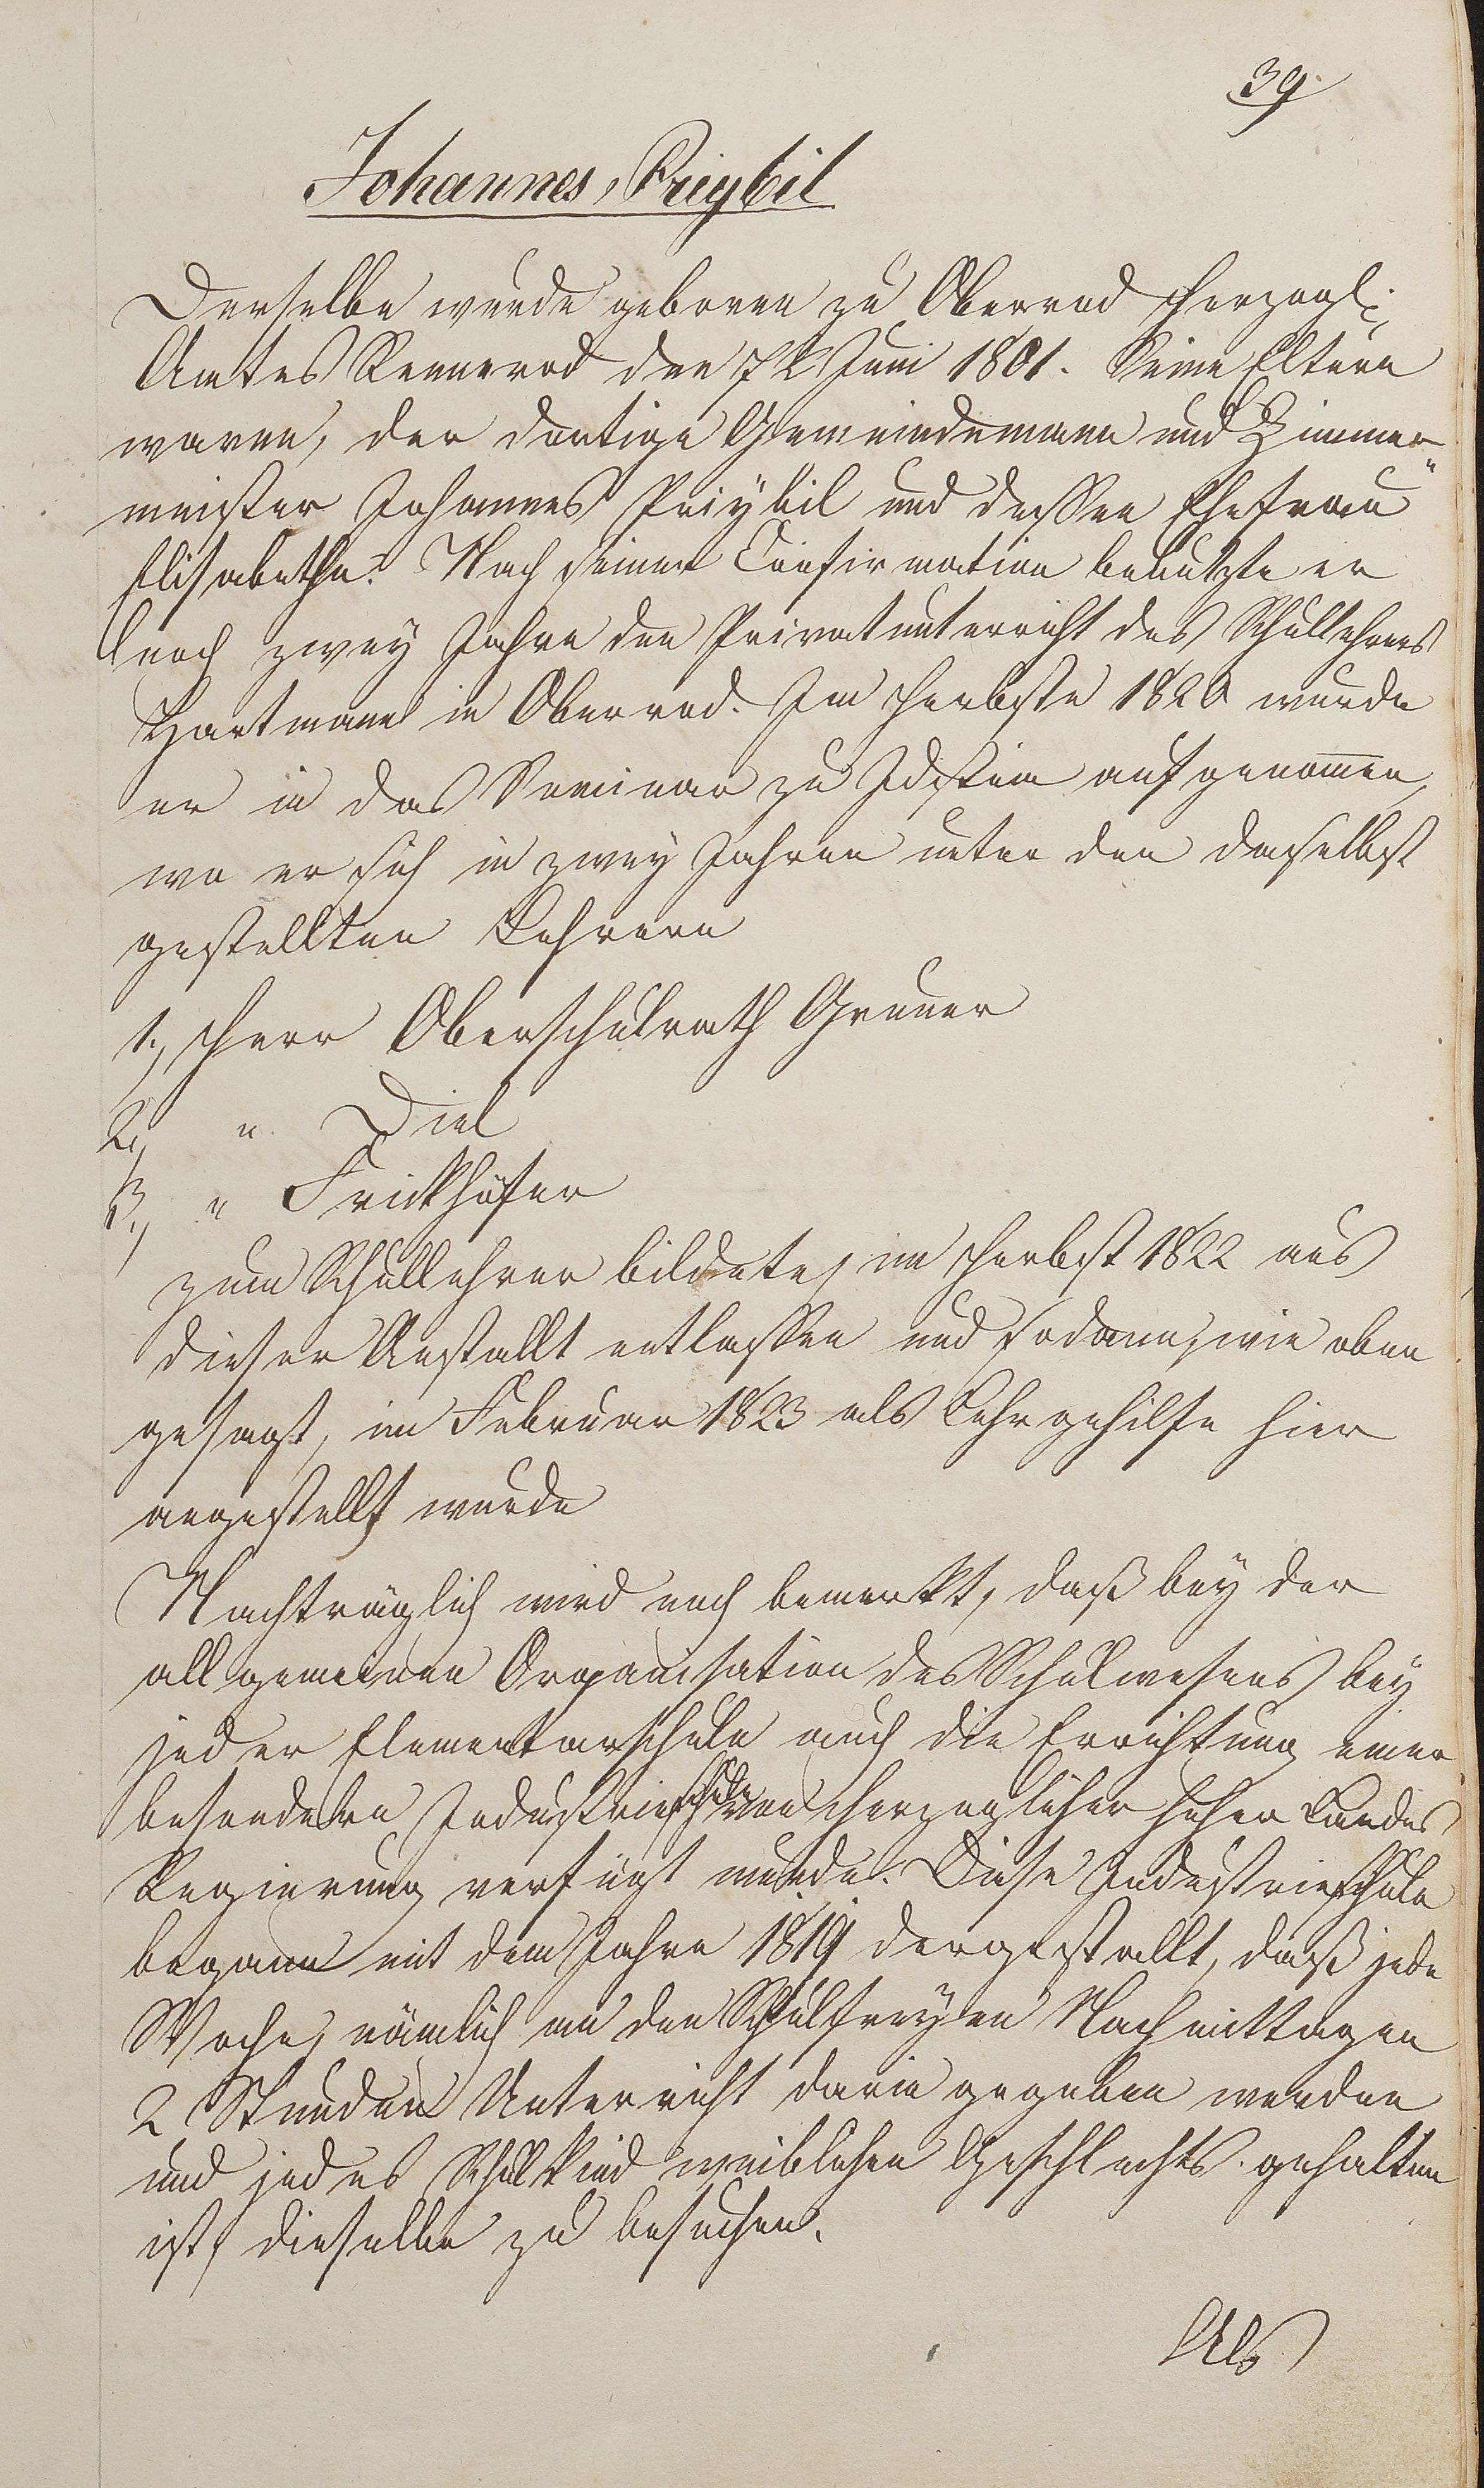 39.
Johannes Priybil
Derselbe wurde geboren zu Oberrod Herzogl.
Amtes Rennerod den 7t Juni 1801. Seine Eltern
waren, der dortige Gemeindemann und Zimmer-
meister Johannes Priybil und dessen Ehefrau
Elisabetha. Nach seiner Confirmation benutzte er
noch zwey Jahre den Privatunterricht des Schullehrers
Hartmann in Oberrod. Im Herbste 1820 wurde
er in das Seminar zu Idstein aufgenom̅en,
wo er sich in zwey Jahren unter den daselbst
gestellten Lehrern
1., Herr Oberschulrath Gruner
2., " Diel
3., " Frickhöfer
zum Schullehrer bildete, im Herbst 1822 aus
dieser Anstallt entlassen und sodann, wie oben
gesagt, im Februar 1823 als Lehrgehilfe hier
angestellt wurde
Nachträglich wird noch bemerkt, daß bey der
allgemeinen Organisation des Schulwesens bey
jeder Elementarschule auch die Errichtung einer
besondern Industrieschule von Herzoglicher hoher Landes
Regierung verfügt wurde. Diese Industrieschule
begann mit dem Jahre 1819 dergestallt, daß jede
Woche, nämlich an den Schulfreyen Nachmittagen
2 Stunden Unterricht darin gegeben werden
und jedes Schulkind weiblichen Geschlechts gehalten
ist, dieselbe zu besuchen.
Als